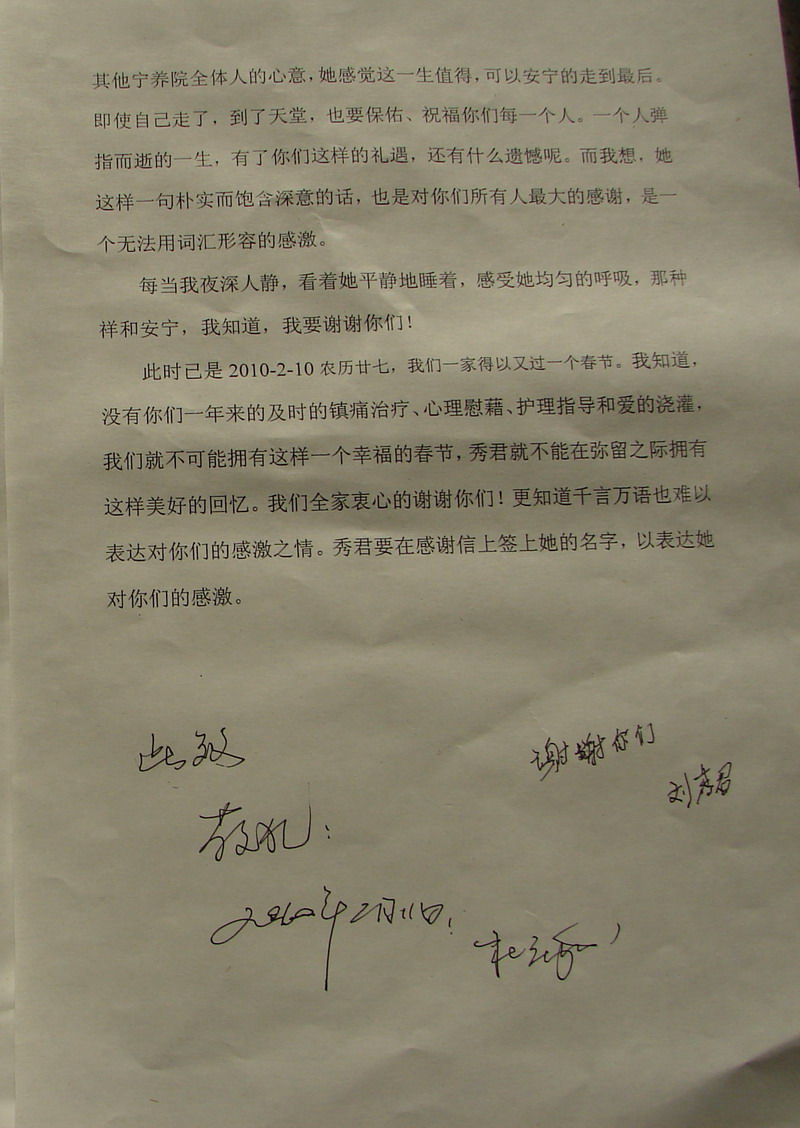 其他宁养院全体人的心意，她感觉这一生值得，可以安宁的走到最后。
即使自己走了，到了天堂，也要保佑、祝福你们每一个人。一个人弹
指而逝的一生，有了你们这样的礼遇，还有什么遗憾呢。而我想，她
这样一句朴实而饱含深意的话，也是对你们所有人最大的感谢，是一
个无法用词汇形容的感激。
每当我夜深人静，看着她平静地睡着，感受她均匀的呼吸，那种
祥和安宁，我知道，我要谢谢你们！
此时已是 2010-2-10 农历廿七，我们一家得以又过一个春节。我知道，
没有你们一年来的及时的镇痛治疗、心理慰藉、护理指导和爱的浇灌，
我们就不可能拥有这样一个幸福的春节，秀君就不能在弥留之际拥有
这样美好的回忆。我们全家衷心的谢谢你们！更知道千言万语也难以
表达对你们的感激之情。秀君要在感谢信上签上她的名字，以表达她
对你们的感激。
此致
谢谢你们
刘秀君
敬礼：
2010年2月11日.